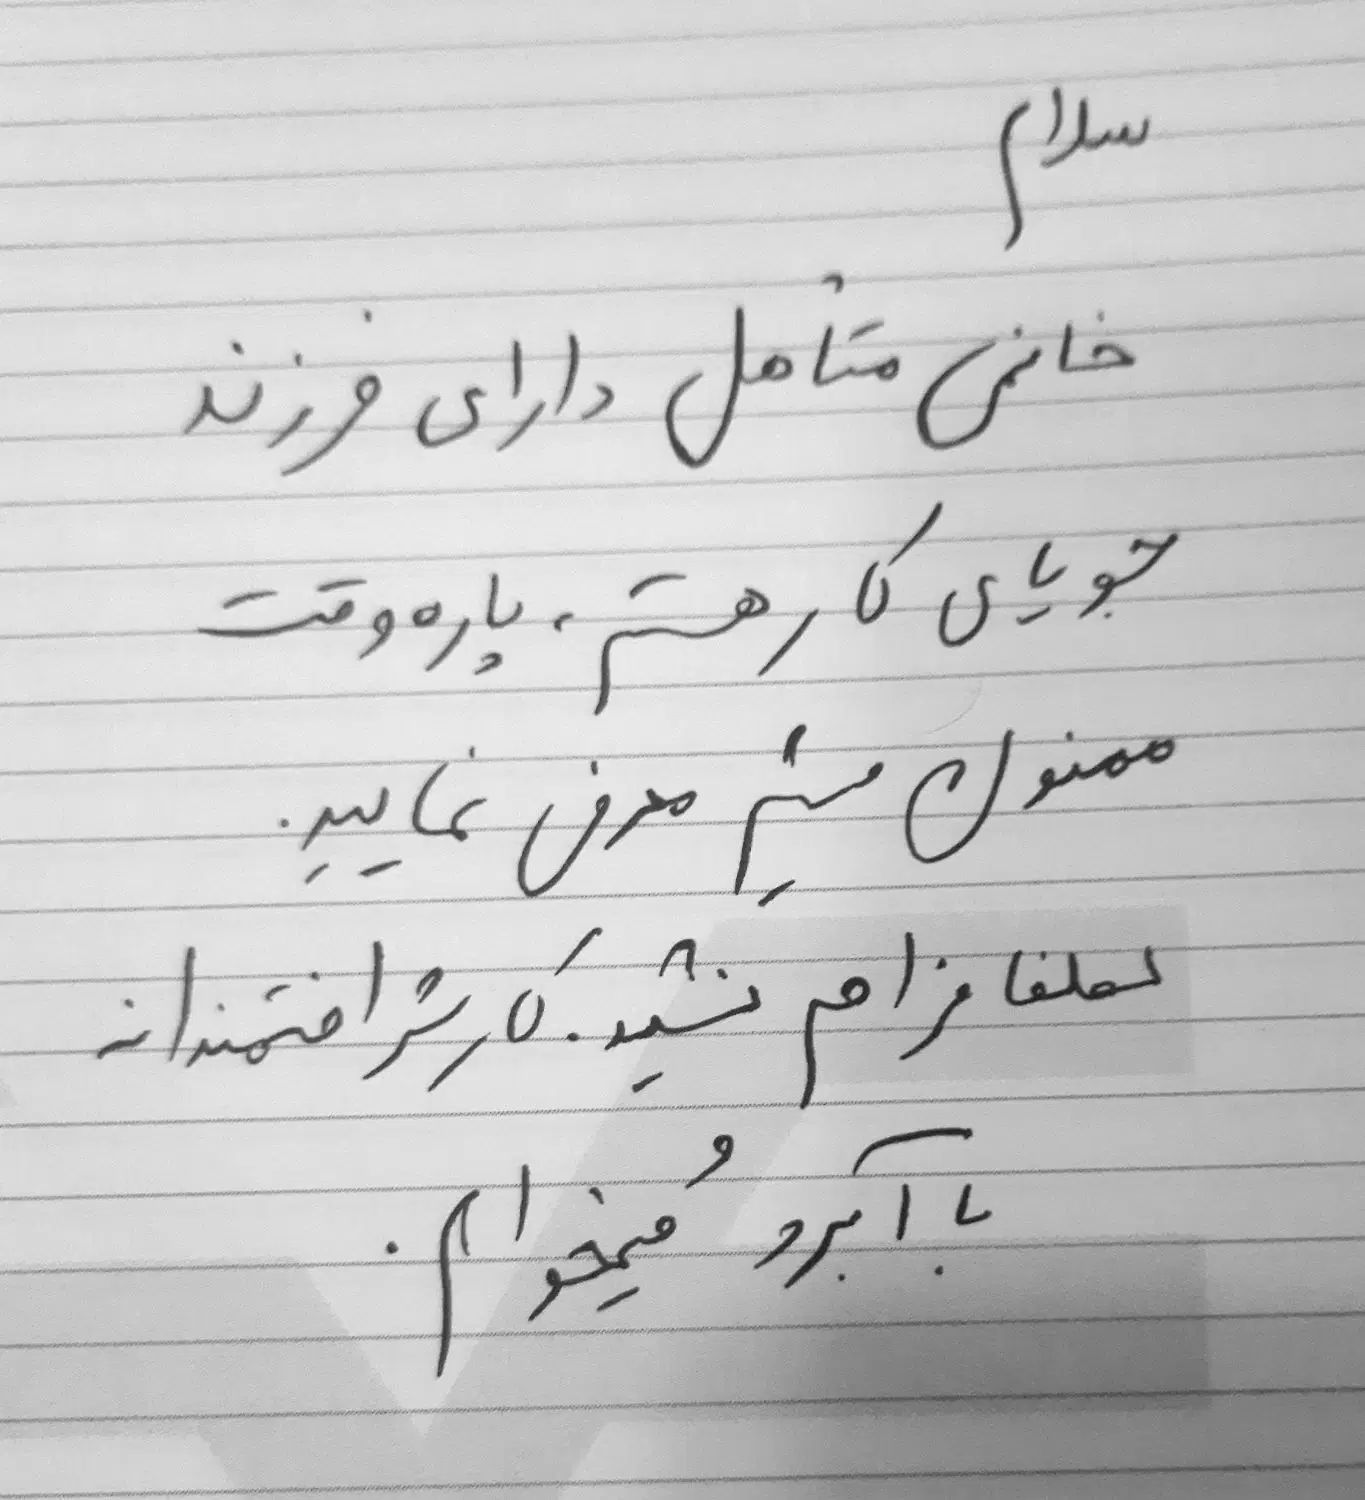 سلام
خانمی متأهل دارای فرزند
جویای کار هستم، پاره وقت
ممنون میشم معرفی نمایید.
لطفا مزاحم نشید. کار شرافتمندانه
با آبرو میخوام.